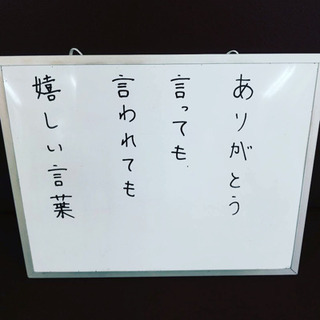 ありがとう
言っても
言われても
嬉しい言葉